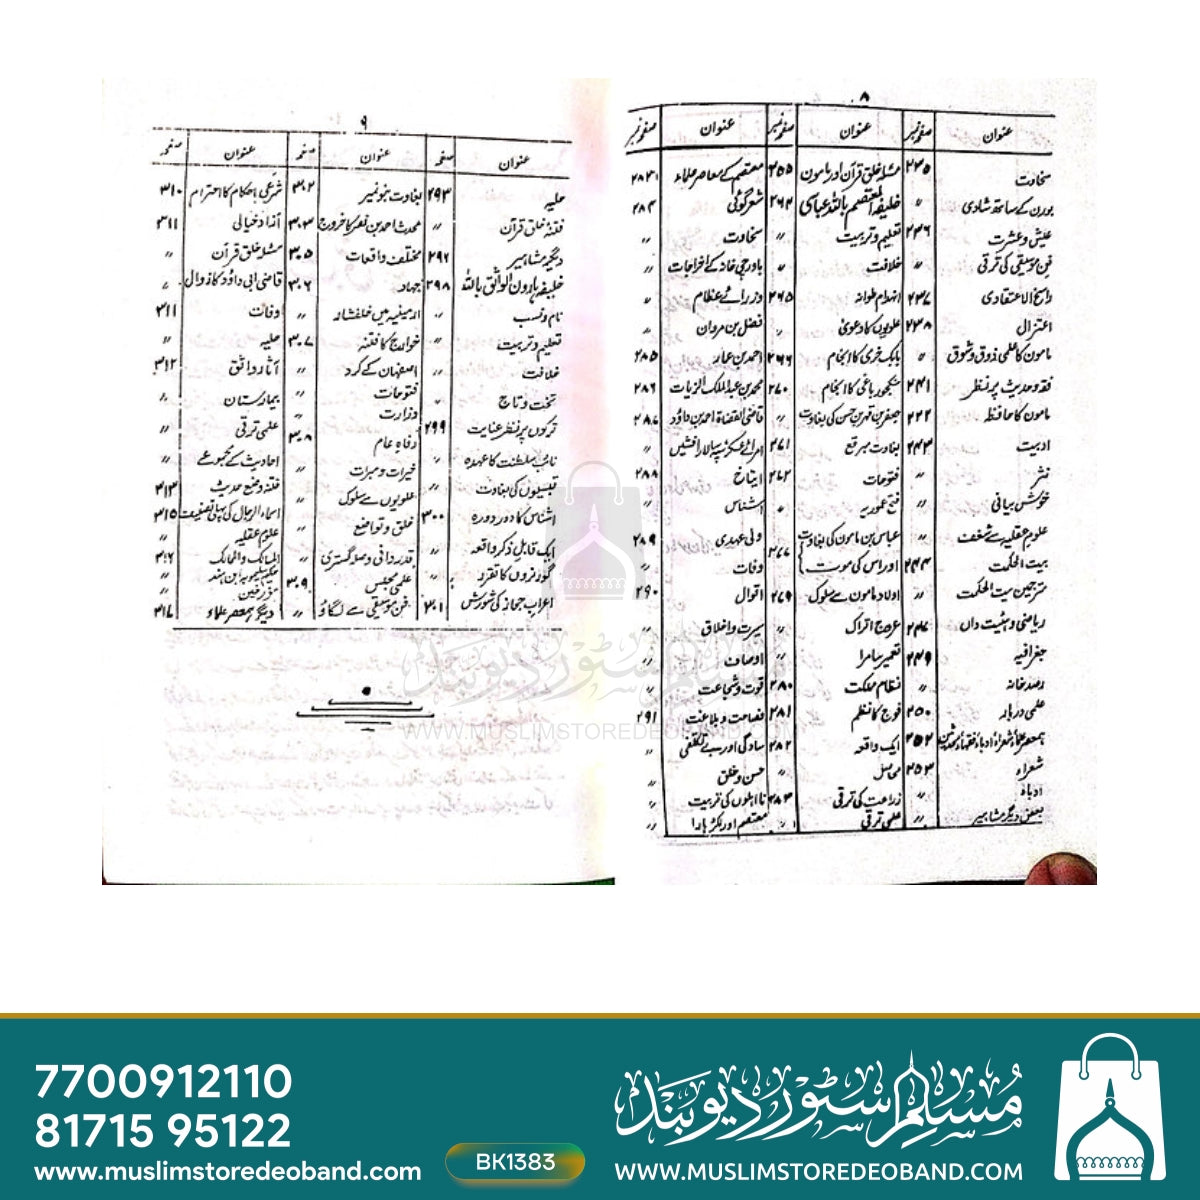 ۸
عنوان صفحہ نمبر عنوان صفحہ نمبر عنوان صفحہ نمبر
سخاوت ۲۳۵ مسئلہ خلق قرآن اور مامون ۲۵۵ معتصم کے معاصر علماء ۲۸۳
بوران کے ساتھ شادی 〃 خلیفہ المعتصم باللہ عباسی ۲۶۳ شعر گوئی ۲۸۴
عیش و عشرت ۲۳۶ تعلیم و تربیت 〃 سخاوت 〃
فن موسیقی کی ترقی 〃 خلافت 〃 باورچی خانہ کے اخراجات 〃
راسخ الاعتقادی ۲۳۷ انہدام طوانہ ۲۶۵ وزرائے عظام 〃
اعتزال ۲۳۸ علویوں کا دعویٰ 〃 فضل بن مروان 〃
مامون کا علمی ذوق و شوق 〃 بابک خرمی کا انجام ۲۶۶ احمد بن عمار ۲۸۵
فقہ و حدیث پر نظر ۲۴۱ باغی کا انجام ۲۷۰ محمد بن عبد الملک الزیات ۲۸۶
مامون کا حافظہ ۲۴۲ 〃 قاضی القضاۃ احمد بن داؤد ۲۸۷
ادبیت ۲۴۳ بغاوت مبرقع ۲۷۱ امرائے عسکر سپہ سالار افشین 〃
نثر 〃 فتوحات ۲۷۲ ایتاخ ۲۸۸
خوش بیانی 〃 فتح عموریہ 〃 اشناس 〃
علوم عقلیہ سے شغف 〃 عباس بن مامون کی بغاوت ۲۷۷ ولی عہدی ۲۸۹
بیت الحکمت ۲۴۴ اور اس کی موت وفات 〃
مترجمین بیت الحکمت 〃 اولاد مامون سے سلوک ۲۷۹ اقوال ۲۹۰
ریاضی و ہیئت داں ۲۴۷ عروج اتراک 〃 سیرت و اخلاق 〃
جغرافیہ ۲۴۹ تعمیر سامرا 〃 اوصاف 〃
رصد خانہ 〃 نظام مملکت ۲۸۰ قوت و شجاعت 〃
علمی دربار ۲۵۰ فوج کا نظم ۲۸۱ فصاحت و بلاغت ۲۹۱
ہمعصر علماء شعراء ادباء فقہاء محدثین ۲۵۲ ایک واقعہ ۲۸۲ سادگی اور بے تکلفی 〃
شعراء ۲۵۳ 〃 حسن و خلق 〃
ادباء 〃 زراعت کی ترقی ۲۸۳ نااہلوں کی تربیت 〃
بعض دیگر مشاہیر 〃 علمی ترقی 〃 معتصم اور لکڑہارا 〃
۹
عنوان صفحہ عنوان صفحہ عنوان صفحہ
حلیہ ۲۹۳ بغاوت بنو نمیر ۳۰۲ شرعی احکام کا احترام ۳۱۰
فتنہ خلق قرآن 〃 محدث احمد بن نصر کا خروج ۳۰۳ آزاد خیالی ۳۱۱
دیگر مشاہیر ۲۹۶ مختلف واقعات ۳۰۵ مسئلہ خلق قرآن 〃
خلیفہ ہارون الواثق باللہ ۲۹۸ جہاد ۳۰۶ قاضی ابی داؤد کا زوال 〃
نام و نسب 〃 ارمینیہ میں خلفشار 〃 وفات ۳۱۱
تعلیم و تربیت 〃 خوارج کا فتنہ ۳۰۷ حلیہ 〃
خلافت 〃 اصفہان کے کرد 〃 آثار واثق ۳۱۲
تخت و تاج 〃 فتوحات 〃 بیمارستان 〃
ترکوں پر نظر عنایت ۲۹۹ وزارت 〃 علمی ترقی 〃
نائب سلطنت کا عہدہ 〃 رفاہ عام ۳۰۸ احادیث کے مجموعے 〃
قبیلوں کی بغاوت 〃 خیرات و مبرات فتنہ وضع حدیث ۳۱۳
اشناس کا دور دورہ ۳۰۰ علویوں سے سلوک 〃 اسماء الرجال کی پہلی تصنیف ۳۱۵
ایک قابل ذکر واقعہ 〃 خلق و تواضع 〃 علوم عقلیہ 〃
گورنروں کا تقرر 〃 قدر دانی و حوصلہ گستری 〃 المسالک والممالک ۳۱۶
اعراب حجاز کی شورش ۳۰۱ علمی مجلس ۳۰۹ 〃
فن موسیقی سے لگاؤ 〃 دیگر ہمعصر علماء ۳۱۷
مسلم سٹور دیوبند
WWW.MUSLIMSTOREDEOBAND.COM
7700912110
81715 95122
www.muslimstoredeoband.com
BK1383
مسلم سٹور دیوبند
WWW.MUSLIMSTOREDEOBAND.COM